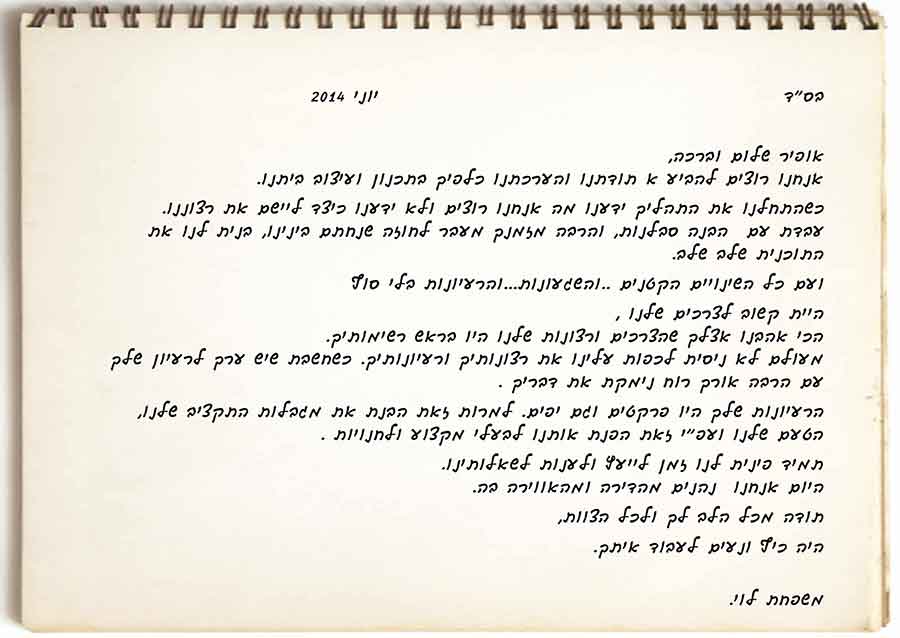 בס"ד
יוני 2014
אופיר שלום וברכה,
אנחנו רוצים להביע א תודתנו והערכתנו כלפיך בתכנון ועיצוב ביתנו.
כשהתחלנו את התהליך ידענו מה אנחנו רוצים ולא ידענו כיצד ליישם את רצוננו.
עבדת עם הבנה סבלנות, והרבה מזמנך מעבר לחוזה שנחתם בינינו, בנית לנו את
התוכנית שלב שלב.
ועם כל השינויים הקטנים ..והשגעונות...והרעיונות בלי סוף
היית קשוב לצרכים שלנו ,
הכי אהבנו אצלך שהצרכים ורצונות שלנו היו בראש רשימותיך.
מעולם לא ניסית לכפות עלינו את רצונותיך ורעיונותיך. כשחשבת שיש ערך לרעיון שלך
עם הרבה אורך רוח נימקת את דבריך .
הרעיונות שלך היו פרקטים וגם יפים. למרות זאת הבנת את מגבלות התקציב שלנו,
הטעם שלנו ועפ"י זאת הפנת אותנו לבעלי מקצוע ולחנויות .
תמיד פינית לנו זמן לייעץ ולענות לשאלותינו.
היום אנחנו נהנים מהדירה ומהאווירה בה.
תודה מכל הלב לך ולכל הצוות,
היה כיף ונעים לעבוד איתך.
משפחת לוי.